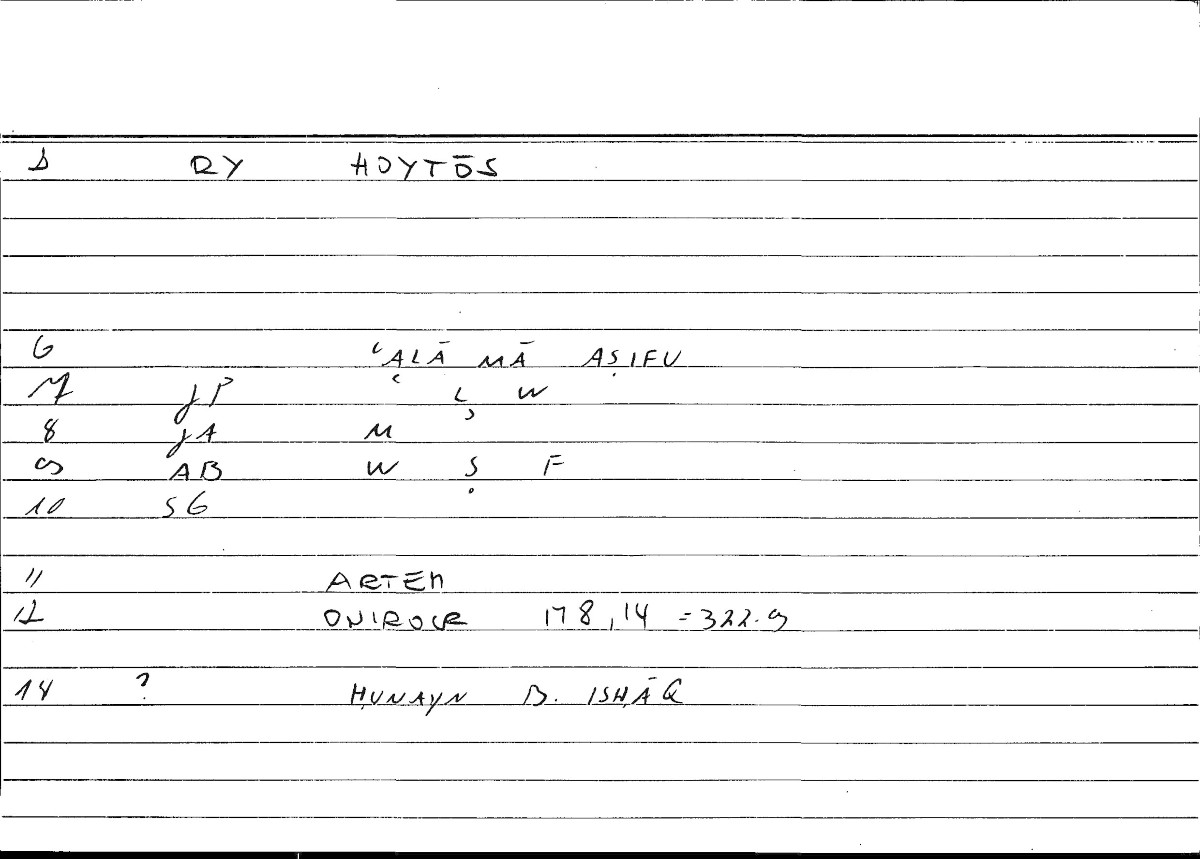 1 RY HOYTŌS
6 ʿALĀ MĀ AṢIFU
7 JP ʿ L W
8 JA M ʾ
9 AB W Ṣ F
10 SG
11 ARTEM
12 ONIROCR 178,14 = 322.9
14 ? ḤUNAYN B. ISḤĀQ